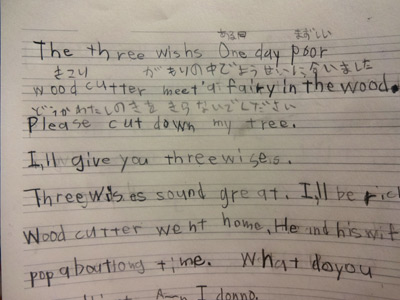 ある日 まずしい
The three wishs One day poor
きこり がもりの中でようせいに会いました
wood cutter meet a fairy in the wood.
どうかわたしのきをきらないでください
Please cut down my tree.
I,ll give you threewises.
Threewises sound great. I,ll be rich
Wood cutter went home, He and his wif
pop about long time. What do you
I donno.